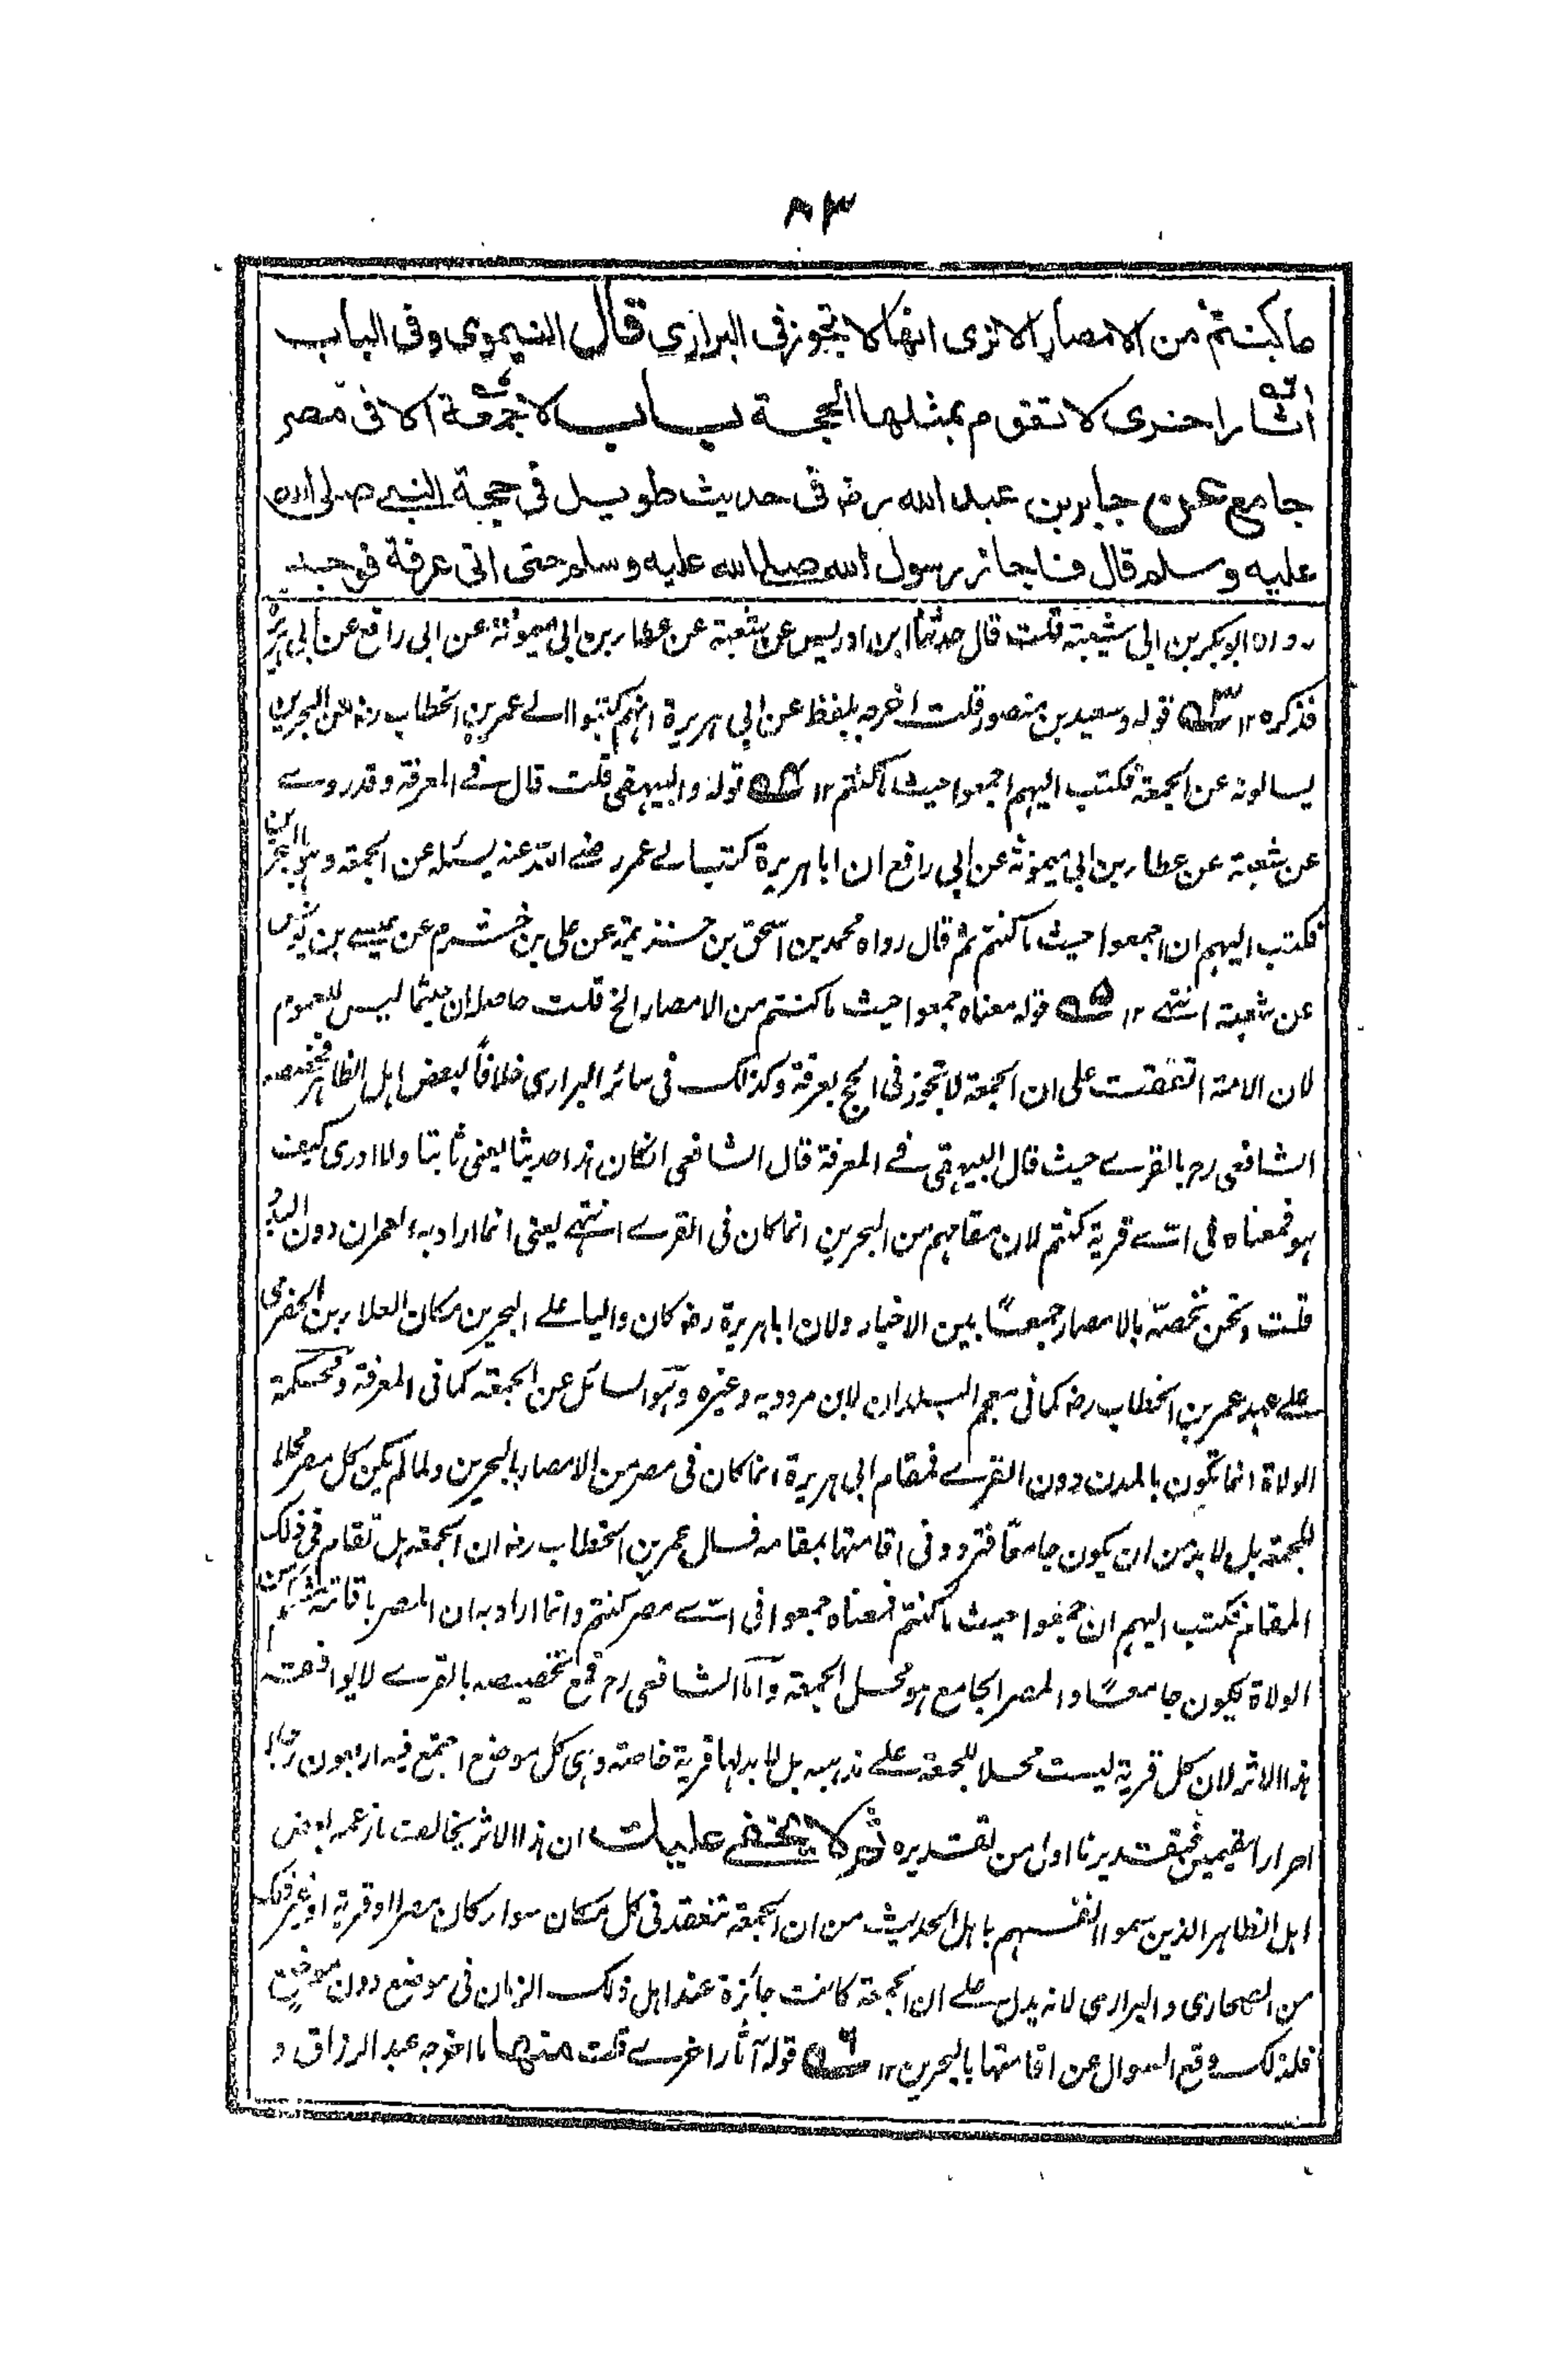 ٨٣
ما كنتم من الامصار الا ترى انها لا تجوز فى البرارى قال النيموى وفى الباب
اثار اخرى لا تقوم بمثلها الحجة باب لا جمعة الا فى مصر
جامع عن جابر بن عبد الله رض فى حديث طويل فى حجة النبى صلى الله
عليه وسلم قال فاجاز رسول الله صلى الله عليه وسلم حتى اتى عرفة فوجد
رواه ابو بكر بن ابى شيبة قلت قال حدثنا ابن ادريس عن شعبة عن عطاء بن ابى ميمونة عن ابى رافع عن ابى هريرة
فذكره ١٢ ٣ قوله وسعيد بن منصور قلت اخرجه بلفظ عن ابى هريرة انهم كتبوا الى عمر بن الخطاب رض من البحرين
يسالونه عن الجمعة فكتب اليهم اجمعوا حيث ما كنتم ١٢ ٤ قوله والبيهقى قلت قال فى المعرفة وقد روى
عن شعبة عن عطاء بن ابى ميمونة عن ابى رافع ان ابا هريرة كتب الى عمر رضى الله عنه يسئله عن الجمعة وهو بالبحرين
فكتب اليهم ان اجمعوا حيث ما كنتم ثم قال رواه محمد بن اسحق بن خزيمة عن على بن خشرم عن عيسى بن يونس
عن شعبة انتهى ١٢ ٥ قوله معناه جمعوا حيث ما كنتم من الامصار الخ قلت حاصله ان حيثما ليس للعموم
لان الامة اتفقت على ان الجمعة لا تجوز فى الحج بعرفة وكذلك فى سائر البرارى خلافاً لبعض اهل الظاهر فخصصه
الشافعى رح بالقرى حيث قال البيهقى فى المعرفة قال الشافعى ان كان هذا حديثا يعنى ثابتا ولا ادرى كيف
هو فمعناه فى اى قرية كنتم لان مقامهم من البحرين انما كان فى القرى انتهى يعنى انما اراد به العمران دون البدو
قلت ونحن نخصه بالامصار جمعاً بين الاخبار ولان ابا هريرة رض كان واليا على البحرين مكان العلاء بن الحضرمى
على عهد عمر بن الخطاب رض كما فى معجم البلدان لابن مردويه وغيره وهو السائل عن الجمعة كما فى المعرفة ومحكمة
الولاة انما تكون بالمدن دون القرى فمقام ابى هريرة انما كان فى مصر من الامصار بالبحرين ولما لم يكن كل مصر محلا
للجمعة بل لا بد من ان يكون جامعا فتردد فى اقامتها بمقامه فسال عمر بن الخطاب رض ان الجمعة هل تقام فى ذلك
المقام فكتب اليهم ان جمعوا حيث ما كنتم فمعناه جمعوا فى اى مصر كنتم وانما اراد به ان المصر باقامة
الولاة يكون جامعاً والمصر الجامع هو محل الجمعة واما الشافعى رح فمع تخصيصه بالقرى لا يوافقه
هذا الاثر لان كل قرية ليست محلا للجمعة على مذهبه بل لا بد لها قرية خاصة وهى كل موضع اجتمع فيه اربعون رجلا
احرار المقيمين فتقديرنا اولى من تقديره ثم لا يخفى عليك ان هذا الاثر يخالف ما زعمه بعض
اهل الظاهر الذين سموا انفسهم باهل الحديث من ان الجمعة تنعقد فى كل مكان سواء كان مصرا او قرية او غير ذلك
من الصحارى والبرارى لانه يدل على ان الجمعة كانت جائزة عند اهل ذلك الزمان فى موضع دون موضع
فلذلك وقع السوال عن اقامتها بالبحرين ١٢ ٦ قوله آثار اخرى قلت منها ما اخرجه عبد الرزاق و